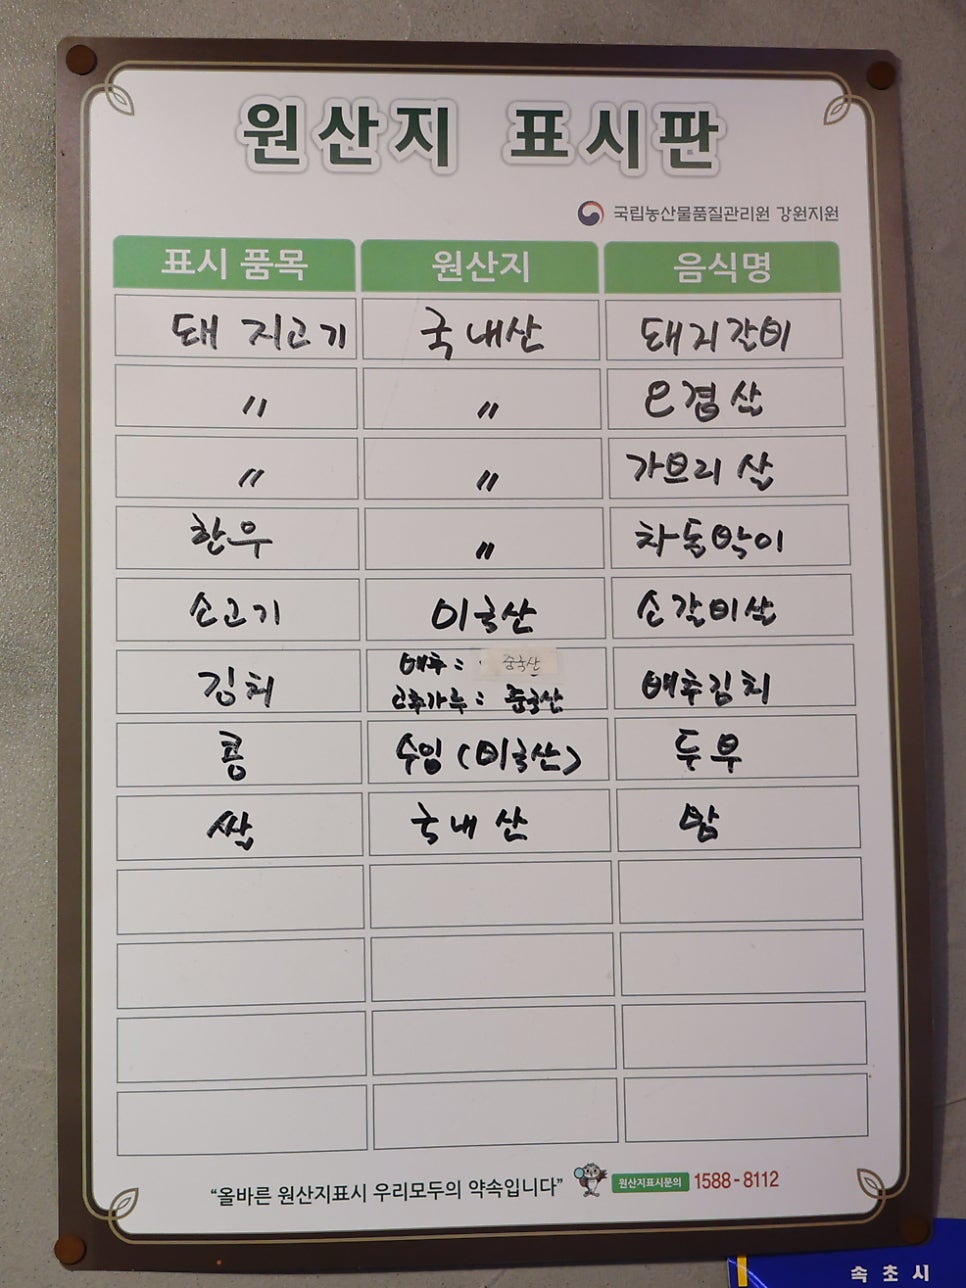 원산지 표시판
국립농산물품질관리원 강원지원
표시 품목 원산지 음식명
돼지고기 국내산 돼지갈비
〃 〃 오겹살
〃 〃 가브리살
한우 〃 차돌박이
소고기 미국산 소갈비살
김치 배추: 중국산 고추가루: 중국산 배추김치
콩 수입(미국산) 두부
쌀 국내산 밥
"올바른 원산지표시 우리모두의 약속입니다" 원산지표시문의 1588-8112
속초시